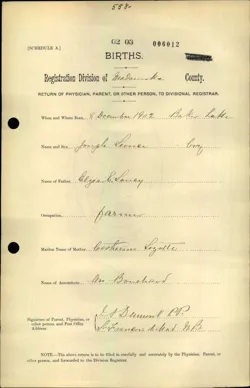 558
[SCHEDULE A.]
02 03
006012
BIRTHS.
Registration Division of Madawaska County.
RETURN OF PHYSICIAN, PARENT, OR OTHER PERSON, TO DIVISIONAL REGISTRAR.
When and Where Born, 8 December 1902 Baker Lake
Name and Sex, Joseph Boy
Name of Father,
Occupation, farmer
Maiden Name of Mother, Catherine
Name of Attendant, Bouchard
Signature of Parent, Physician, or
other person, and Post Office
Address.
P.P.
St Francis de Mad. N.B.
NOTE.—The above return is to be filled in carefully and accurately by the Physician, Parent, or
other persons, and forwarded to the Division Registrar.